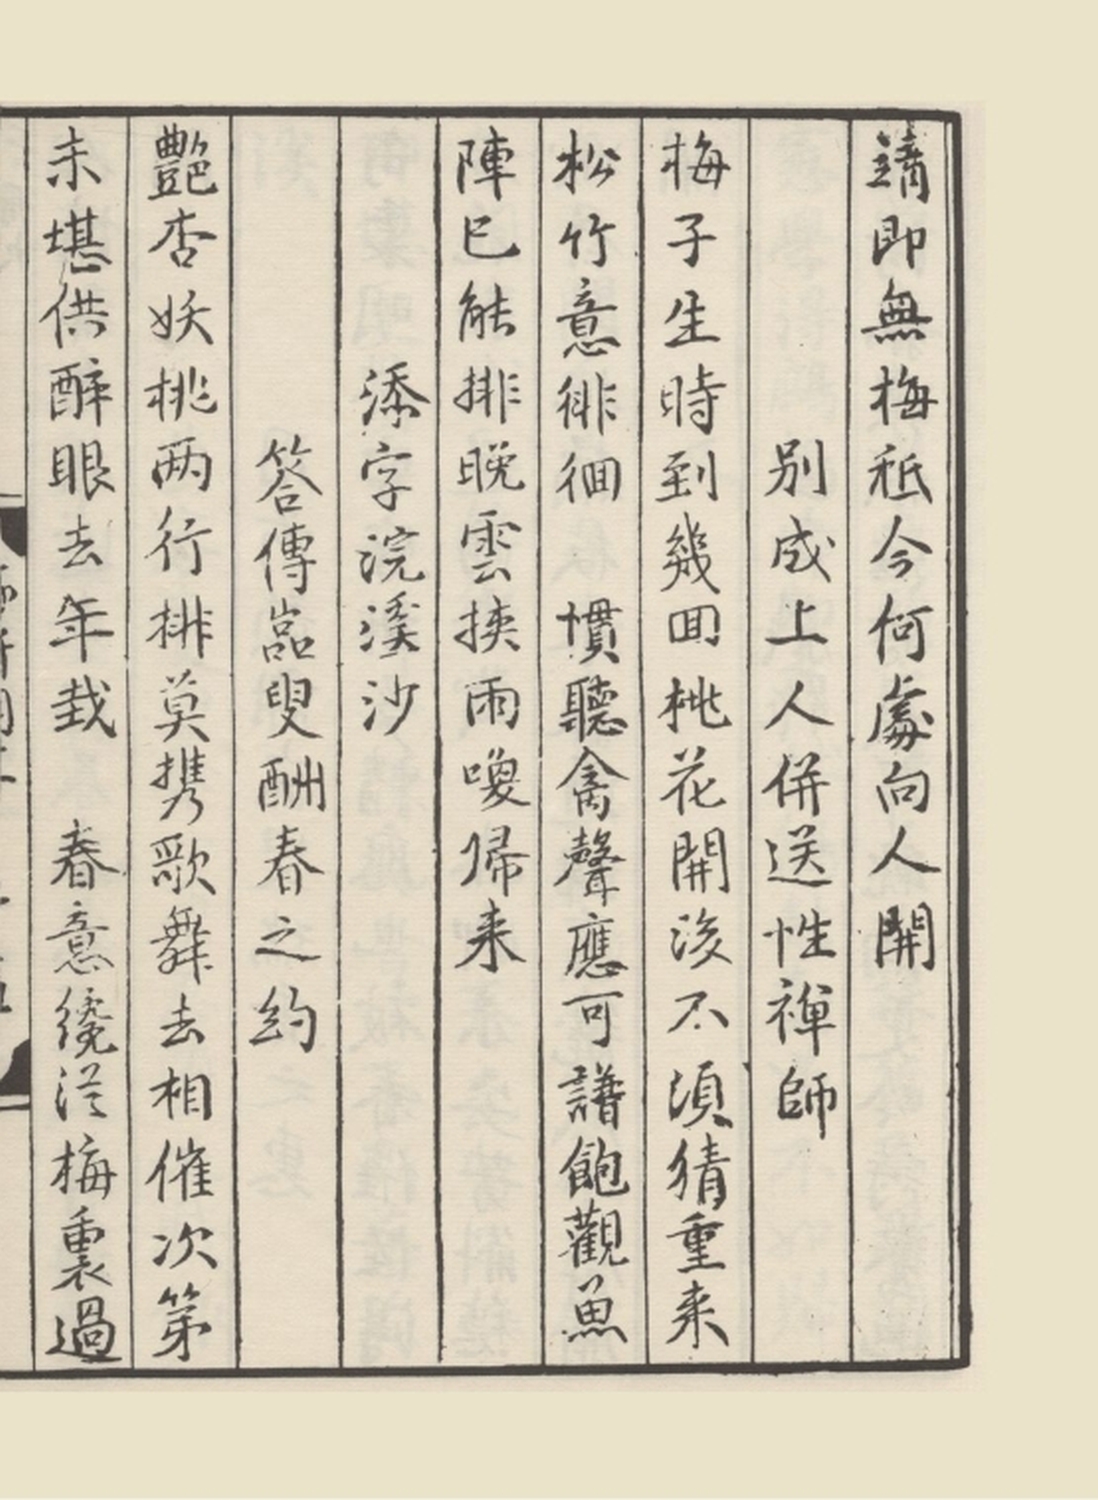 謫即無梅秪今何處向人開
別成上人併送性禪師
梅子生時到幾回桃花開後不須猜重来
松竹意徘徊　慣聽禽聲應可譜飽觀魚
陣已能排晚雲挟雨喚歸来
添字浣溪沙
答傳嵓叟酬春之約
艷杏妖桃两行排莫携歌舞去相催次第
未堪供醉眼去年栽　春意纔從梅裏過